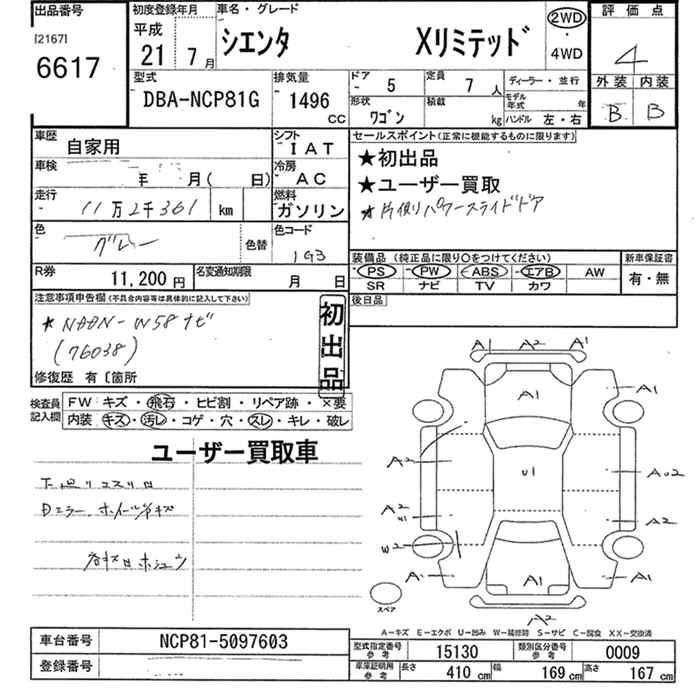 出品番号
[2167]
6617
初度登録年月
平成
21 7月
車名・グレード
シエンタ Xリミテッド
2WD
・
4WD
評価点
4
外装 内装
B B
型式
DBA-NCP81G
排気量
1496
CC
ドア
5
定員
7 人
形状
ワゴン
積載
kg
ディーラー・並行
モデル年式 年
ハンドル 左・右
車歴
自家用
シフト
I AT
車検
年 月( 日)
冷房
AC
走行
11万2千361 km
燃料
ガソリン
色
グレー
色替
色コード
1G3
R券
11,200 円
名変通知期限
月 日
セールスポイント(正常に機能するものに限ります)
★初出品
★ユーザー買取
★片側パワースライドドア
装備品 (純正品に限り○をつけてください)
PS PW ABS エアB AW
SR ナビ TV カワ
新車保証書
有・無
後日品
注意事項申告欄(不具合内容等は具体的に記入して下さい)
★NDDN-W58ナビ
(76038)
初出品
修復歴 有〔箇所
検査員記入欄
FW キズ・飛石・ヒビ割・リペア跡・×要
内装 キズ・汚レ・コゲ・穴・スレ・キレ・破レ
ユーザー買取車
下廻リコスリ
Dミラー、ホイールキズ
A1 A2 A1
A1 A1
A2 U1 AU2
A2 U1 A2
W2
A1 A1 A1
A2
スペア
A-キズ E-エクボ U-凹み W-補修跡 S-サビ C-腐食 XX-交換済
車台番号
NCP81-5097603
登録番号
型式指定番号
参考
15130
類別区分番号
参考
0009
車庫証明用
参考
長さ 410 cm 幅 169 cm 高さ 167 cm